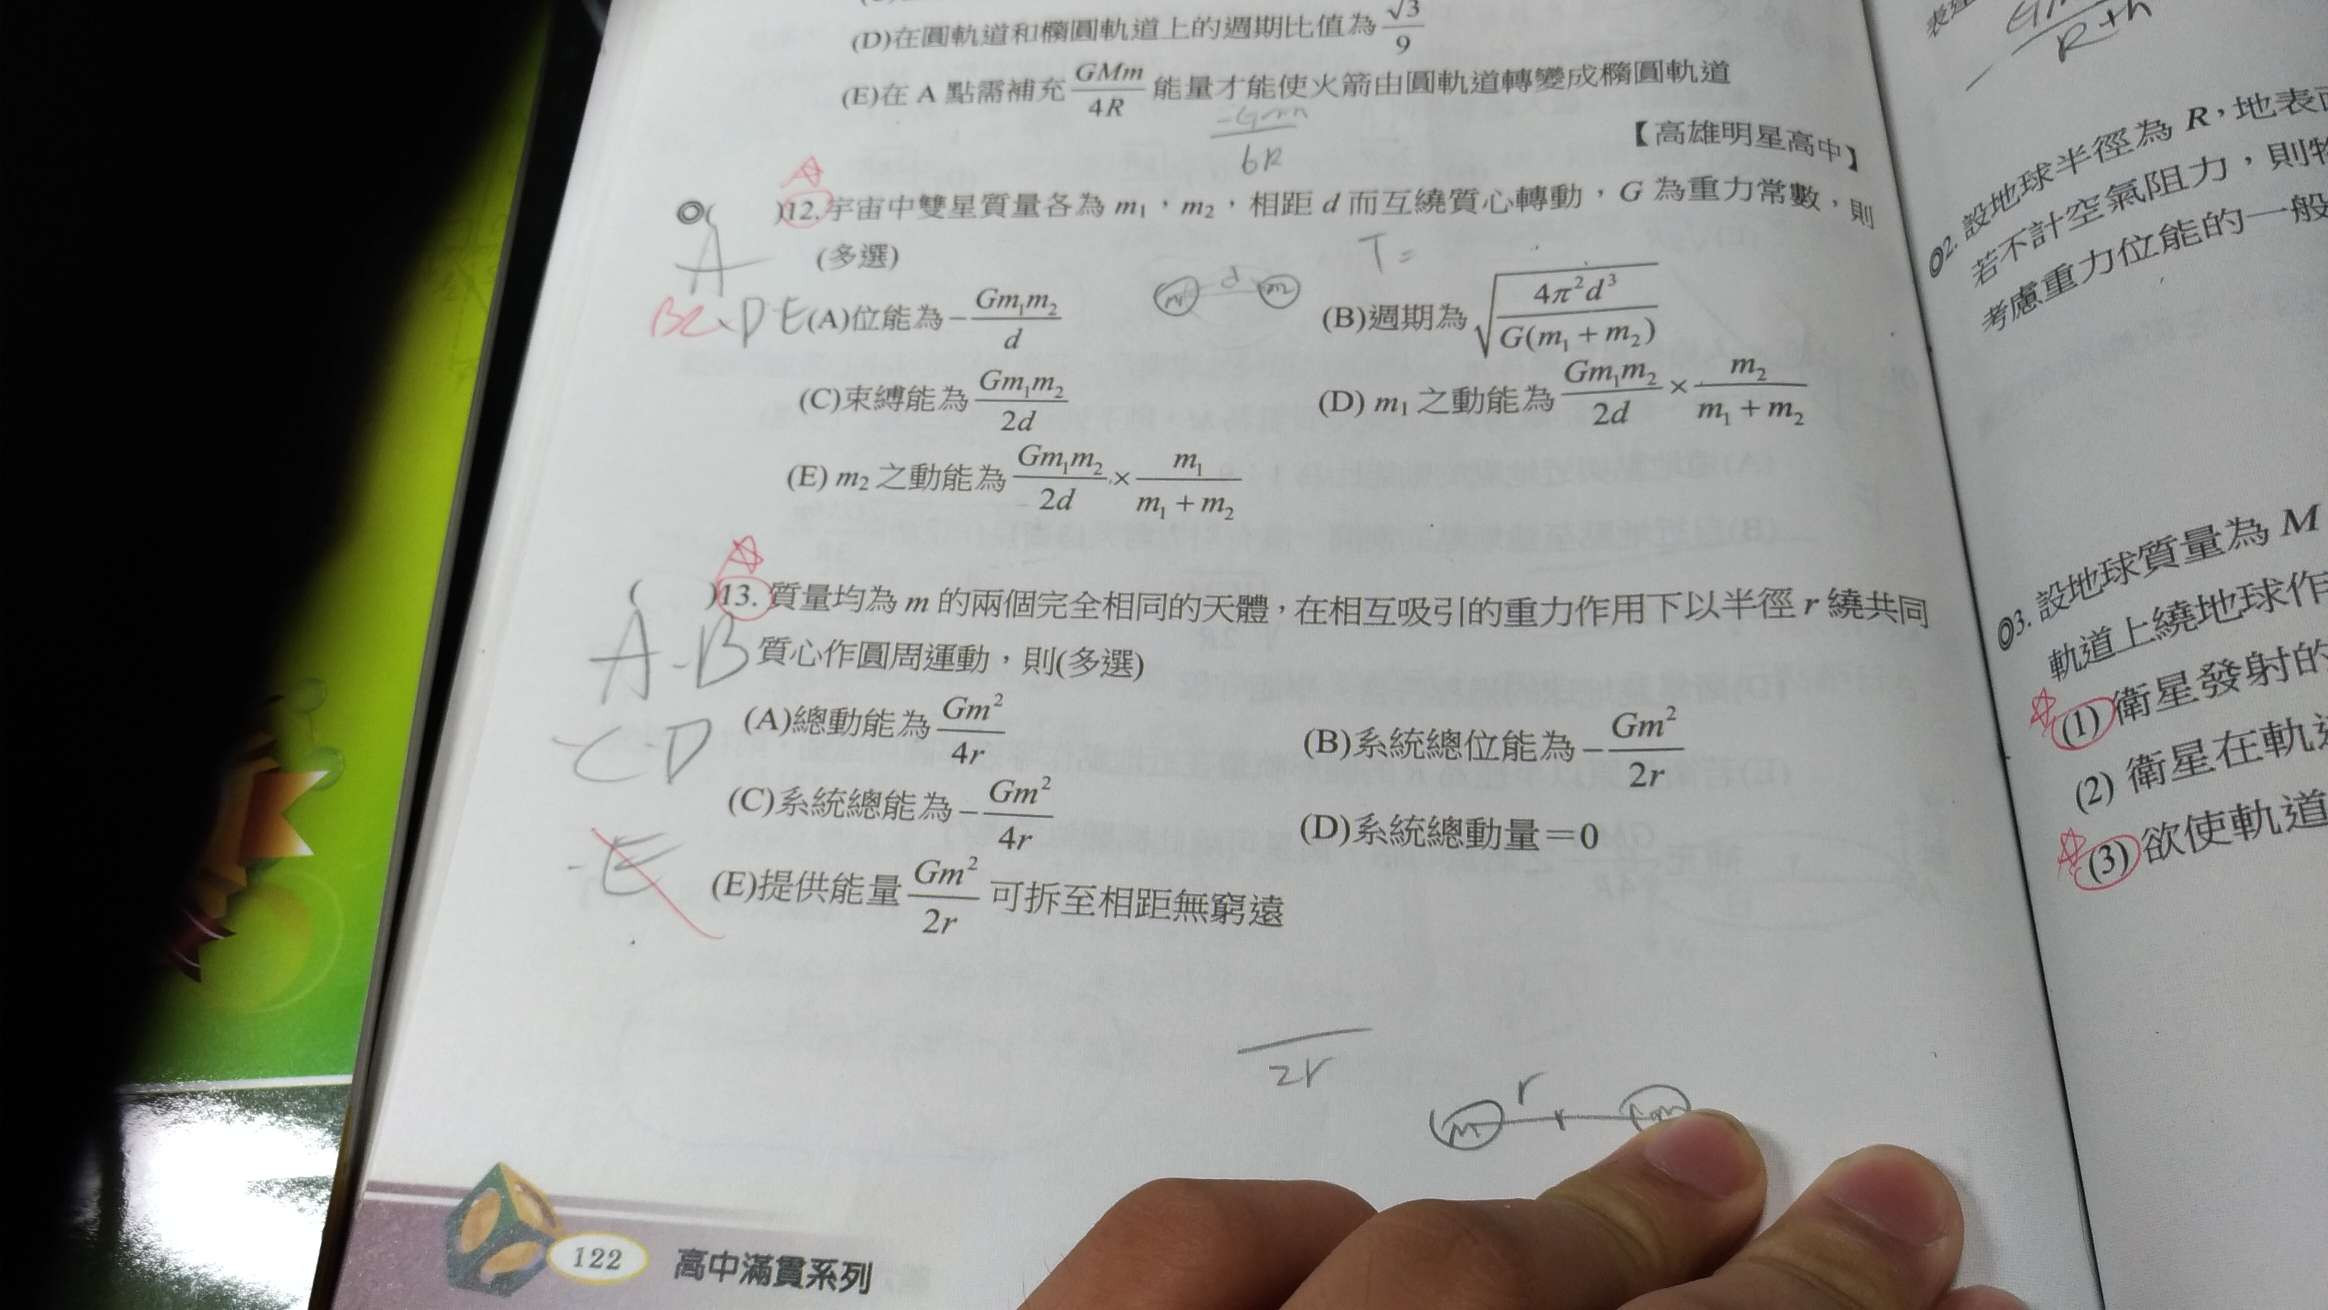 (D)在圓軌道和橢圓軌道上的週期比值為 √3/9
(E)在 A 點需補充 GMm/4R 能量才能使火箭由圓軌道轉變成橢圓軌道
-GMm/6R
【高雄明星高中】
◎( )12.宇宙中雙星質量各為 m₁,m₂,相距 d 而互繞質心轉動,G 為重力常數,則
(多選)
A
T=
BC、DE
m d m
(A)位能為 -Gm₁m₂/d
(B)週期為 √(4π²d³/G(m₁+m₂))
(C)束縛能為 Gm₁m₂/2d
(D) m₁ 之動能為 Gm₁m₂/2d × m₂/(m₁+m₂)
(E) m₂ 之動能為 Gm₁m₂/2d × m₁/(m₁+m₂)
( )13.質量均為 m 的兩個完全相同的天體,在相互吸引的重力作用下以半徑 r 繞共同
質心作圓周運動,則(多選)
A-B
-C-D
-E
(A)總動能為 Gm²/4r
(B)系統總位能為 -Gm²/2r
(C)系統總能為 -Gm²/4r
(D)系統總動量=0
(E)提供能量 Gm²/2r 可拆至相距無窮遠
2r
m r
122
高中滿貫系列
R+h
2.設地球半徑為 R,地表
若不計空氣阻力,則
考慮重力位能的一般
3.設地球質量為 M
軌道上繞地球作
(1)衛星發射的
(2)衛星在軌
(3)欲使軌道